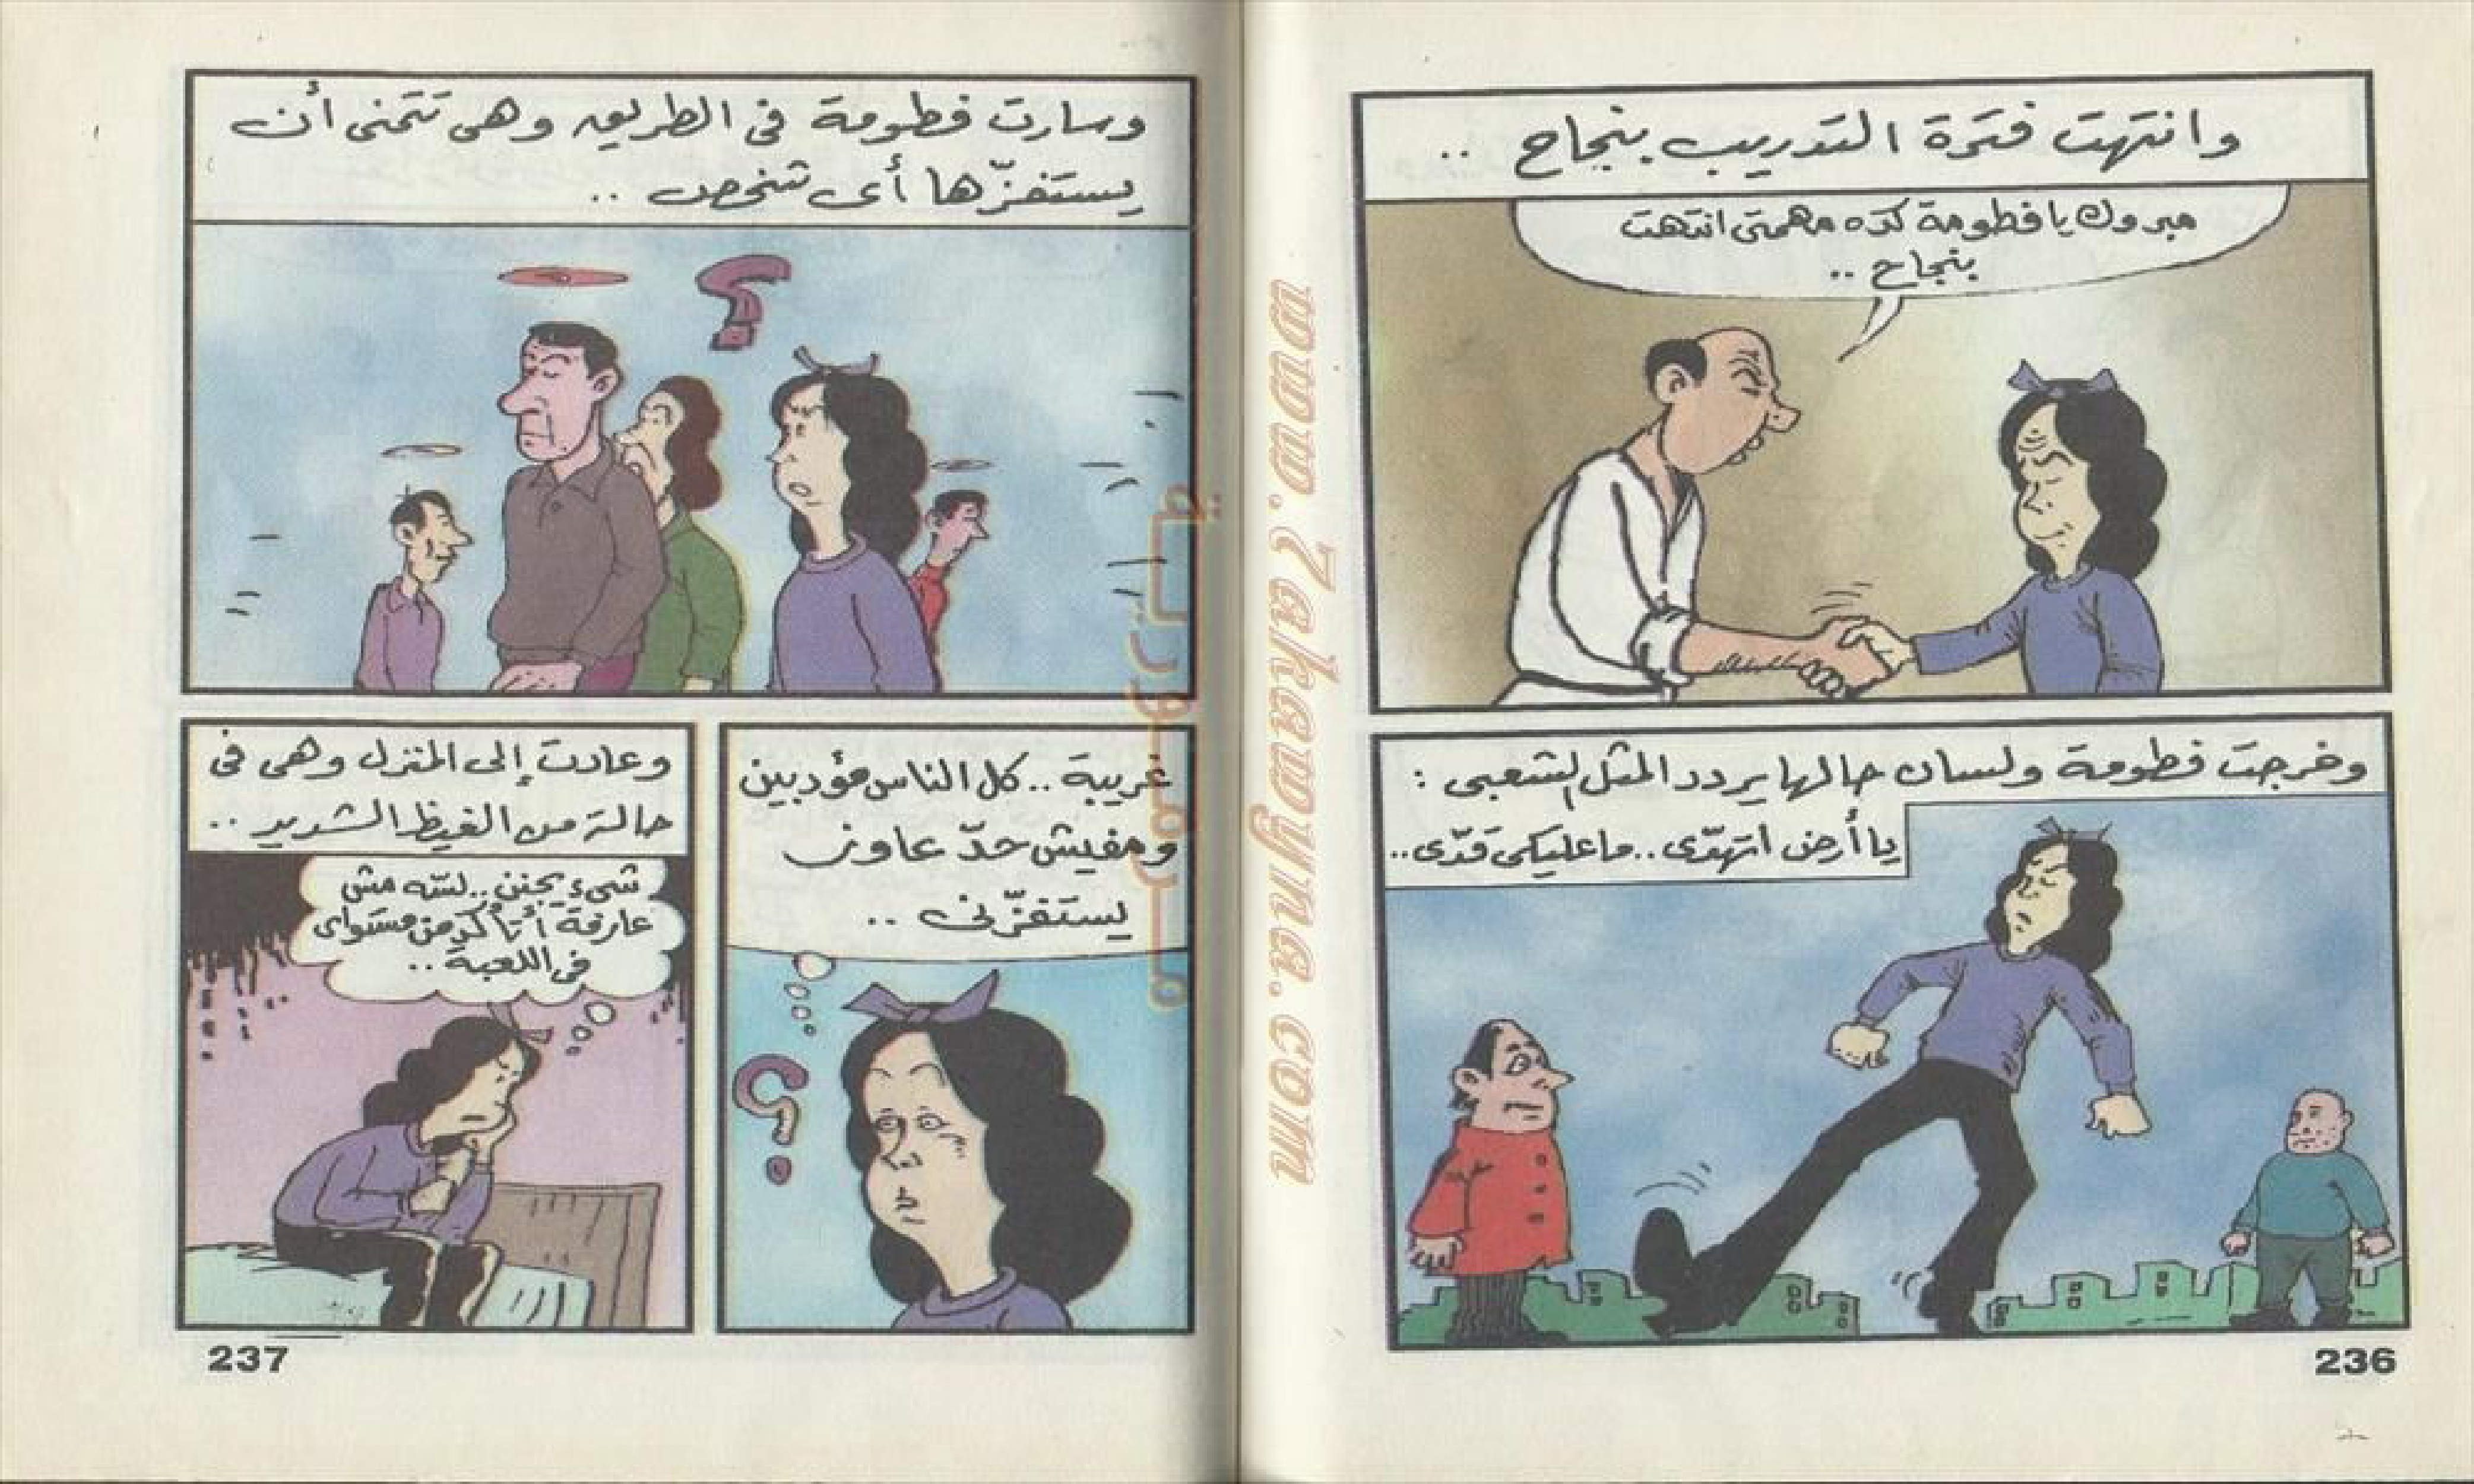 وانتهت فترة التدريب بنجاح ..
مبروك يا فطومة كده مهمتى انتهت
بنجاح ..
وخرجت فطومة ولسان حالها يردد المثل الشعبى :
يا أرض اتهدّى .. ما عليكى قدّى ..
236
وسارت فطومة فى الطريق وهى تتمنى أن
يستفزّها أى شخص ..
؟
غريبة .. كل الناس مؤدبين
ومفيش حدّ عاوز
يستفزّنى ..
؟
وعادت إلى المنزل وهى فى
حالة من الغيظ الشديد ..
شىء يجنن .. لسّه مش
عارفة أتأكد من مستواى
فى اللعبة ..
237
www.7akawyna.com
مرمورية